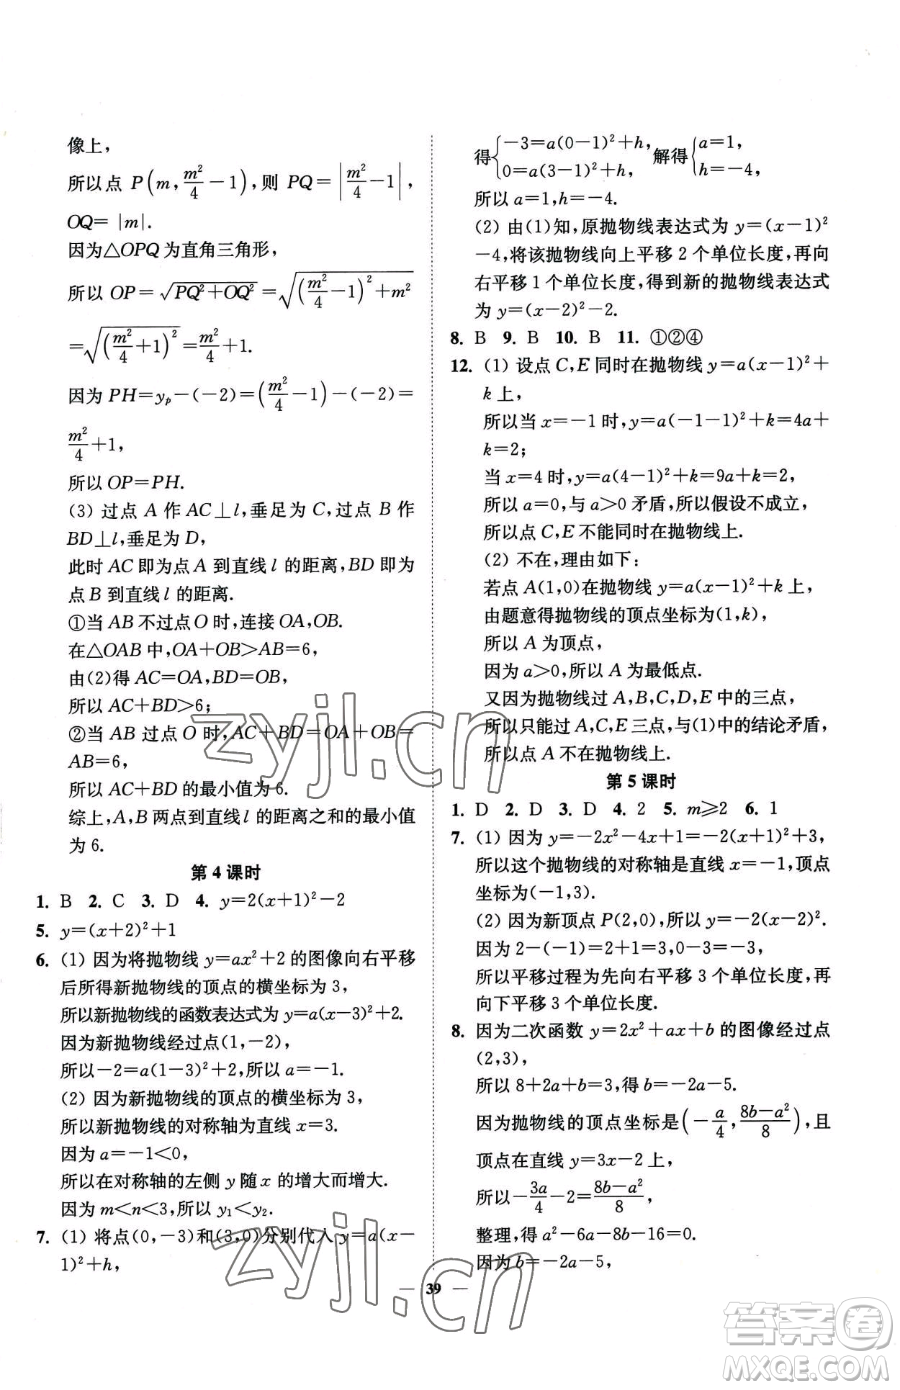 像上，
所以点 P(m, m²/4－1)，则 PQ＝|m²/4－1|，
OQ＝|m|.
因为△OPQ 为直角三角形，
所以 OP＝√(PQ²＋OQ²)＝√((m²/4－1)²＋m²)
＝√((m²/4＋1)²)＝m²/4＋1.
因为 PH＝yₚ－(－2)＝(m²/4－1)－(－2)＝
m²/4＋1，
所以 OP＝PH.
(3) 过点 A 作 AC⊥l，垂足为 C，过点 B 作
BD⊥l，垂足为 D，
此时 AC 即为点 A 到直线 l 的距离，BD 即为
点 B 到直线 l 的距离.
①当 AB 不过点 O 时，连接 OA，OB.
在△OAB 中，OA＋OB＞AB＝6，
由(2)得 AC＝OA，BD＝OB，
所以 AC＋BD＞6；
②当 AB 过点 O 时，AC＋BD＝OA＋OB＝
AB＝6，
所以 AC＋BD 的最小值为 6.
综上，A，B 两点到直线 l 的距离之和的最小值
为 6.
第 4 课时
1. B 2. C 3. D 4. y＝2(x＋1)²－2
5. y＝(x＋2)²＋1
6. (1) 因为将抛物线 y＝ax²＋2 的图像向右平移
后所得新抛物线的顶点的横坐标为 3，
所以新抛物线的函数表达式为 y＝a(x－3)²＋2.
因为新抛物线经过点(1，－2)，
所以－2＝a(1－3)²＋2，所以 a＝－1.
(2) 因为新抛物线的顶点的横坐标为 3，
所以新抛物线的对称轴为直线 x＝3.
因为 a＝－1＜0，
所以在对称轴的左侧 y 随 x 的增大而增大.
因为 m＜n＜3，所以 y₁＜y₂.
7. (1) 将点(0，－3)和(3，0)分别代入 y＝a(x－
1)²＋h，
得{－3＝a(0－1)²＋h， 0＝a(3－1)²＋h， 解得{a＝1， h＝－4，
所以 a＝1，h＝－4.
(2) 由(1)知，原抛物线表达式为 y＝(x－1)²
－4，将该抛物线向上平移 2 个单位长度，再向
右平移 1 个单位长度，得到新的抛物线表达式
为 y＝(x－2)²－2.
8. B 9. B 10. B 11. ①②④
12. (1) 设点 C，E 同时在抛物线 y＝a(x－1)²＋
k 上，
所以当 x＝－1 时，y＝a(－1－1)²＋k＝4a＋
k＝2；
当 x＝4 时，y＝a(4－1)²＋k＝9a＋k＝2，
所以 a＝0，与 a＞0 矛盾，所以假设不成立，
所以点 C，E 不能同时在抛物线上.
(2) 不在，理由如下：
若点 A(1，0)在抛物线 y＝a(x－1)²＋k 上，
由题意得抛物线的顶点坐标为(1，k)，
所以 A 为顶点，
因为 a＞0，所以 A 为最低点.
又因为抛物线过 A，B，C，D，E 中的三点，
所以只能过 A，C，E 三点，与(1)中的结论矛盾，
所以点 A 不在抛物线上.
第 5 课时
1. D 2. D 3. D 4. 2 5. m≥2 6. 1
7. (1) 因为 y＝－2x²－4x＋1＝－2(x＋1)²＋3，
所以这个抛物线的对称轴是直线 x＝－1，顶点
坐标为(－1，3).
(2) 因为新顶点 P(2，0)，所以 y＝－2(x－2)².
因为 2－(－1)＝2＋1＝3，0－3＝－3，
所以平移过程为先向右平移 3 个单位长度，再
向下平移 3 个单位长度.
8. 因为二次函数 y＝2x²＋ax＋b 的图像经过点
(2，3)，
所以 8＋2a＋b＝3，得 b＝－2a－5.
因为抛物线的顶点坐标是(－a/4, (8b－a²)/8)，且
顶点在直线 y＝3x－2 上，
所以－3a/4－2＝(8b－a²)/8，
整理，得 a²－6a－8b－16＝0.
因为 b＝－2a－5，
— 39 —
zyjl.cn
zyjl.cn
答案卷
MXQE.COM